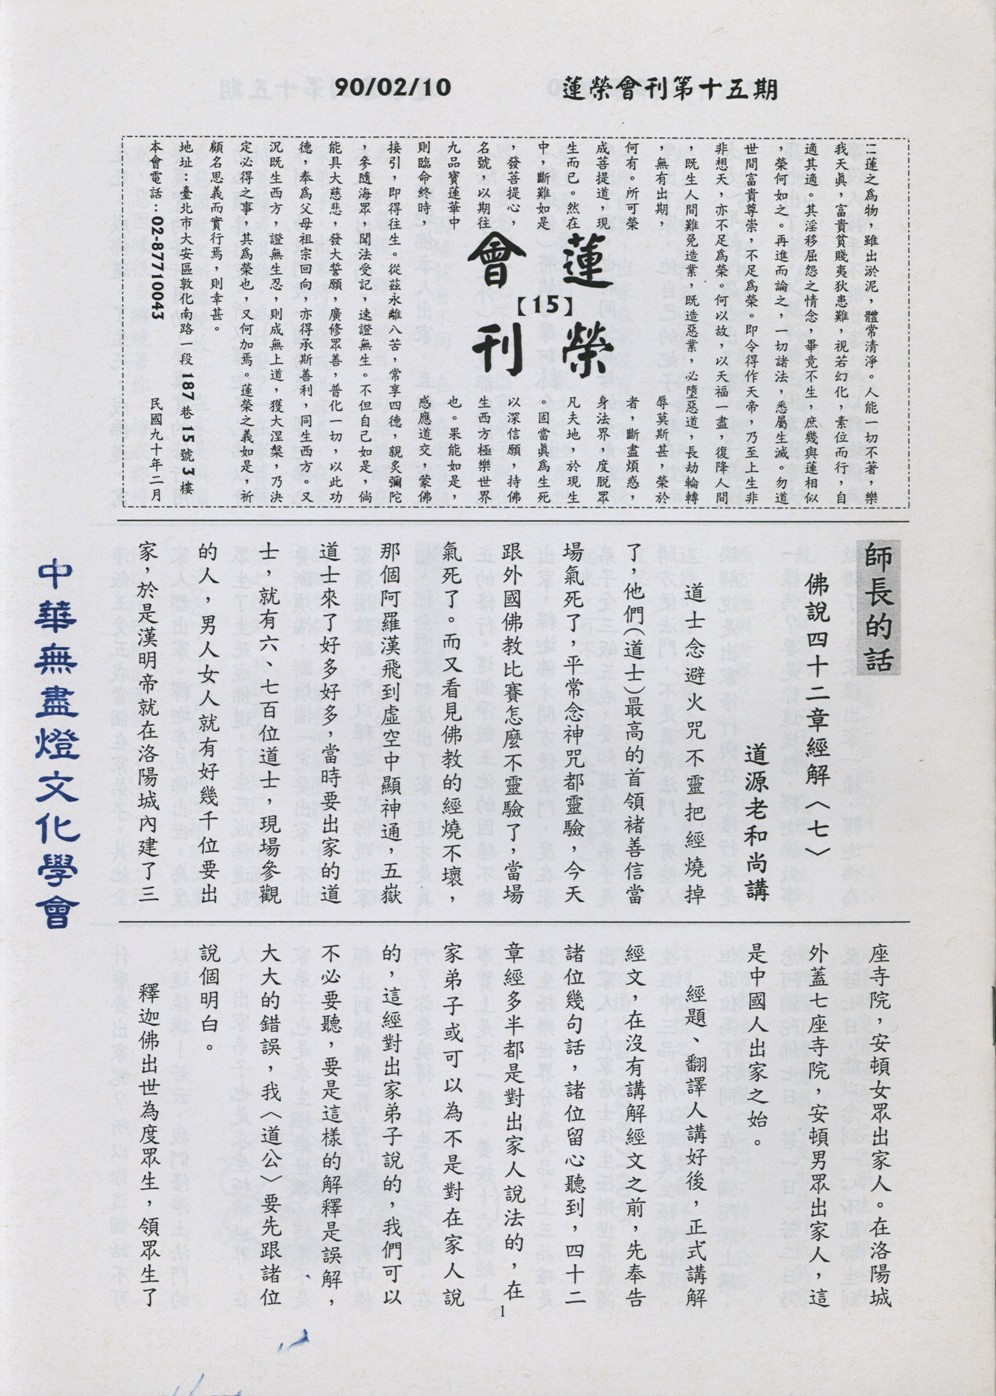 90/02/10
蓮榮會刊第十五期
::蓮之為物,雖出淤泥,體常清淨。人能一切不著,樂
我天真,富貴貧賤夷狄患難,視若幻化,素位而行,自
適其適。其淫移屈怨之情念,畢竟不生,庶幾與蓮相似
,榮何如之。再進而論之,一切諸法,悉屬生滅。勿道
世間富貴尊崇,不足為榮。即令得作天帝,乃至上生非
非想天,亦不足為榮。何以故,以天福一盡,復降人間
,既生人間難免造業,既造惡業,必墮惡道,長劫輪轉
,無有出期,辱莫斯甚,榮於
何有。所可榮者,斷盡煩惑,
成菩提道,現身法界,度脫眾
生而已。然在凡夫地,於現生
中,斷難如是。固當真為生死
,發菩提心,以深信願,持佛
名號,以期往生西方極樂世界
九品寶蓮華中也。果能如是,
則臨命終時,感應道交,蒙佛
接引,即得往生。從茲永離八苦,常享四德,親炙彌陀
,參隨海眾,聞法受記,速證無生。不但自己如是,倘
能具大慈悲,發大誓願,廣修眾善,普化一切,以此功
德,奉為父母祖宗回向,亦得承斯善利,同生西方。又
況既生西方,證無生忍,則成無上道,獲大涅槃,乃決
定必得之事,其為榮也,又何加焉。蓮榮之義如是,祈
顧名思義而實行焉,則幸甚。
地址:臺北市大安區敦化南路一段187巷15號3樓
本會電話:02-87710043 民國九十年二月
蓮榮
【15】
會刊
師長的話
佛說四十二章經解〈七〉
道源老和尚講
道士念避火咒不靈把經燒掉
了,他們(道士)最高的首領褚善信當
場氣死了,平常念神咒都靈驗,今天
跟外國佛教比賽怎麼不靈驗了,當場
氣死了。而又看見佛教的經燒不壞,
那個阿羅漢飛到虛空中顯神通,五嶽
道士來了好多好多,當時要出家的道
士,就有六、七百位道士,現場參觀
的人,男人女人就有好幾千位要出
家,於是漢明帝就在洛陽城內建了三
座寺院,安頓女眾出家人。在洛陽城
外蓋七座寺院,安頓男眾出家人,這
是中國人出家之始。
經題、翻譯人講好後,正式講解
經文,在沒有講解經文之前,先奉告
諸位幾句話,諸位留心聽到,四十二
章經多半都是對出家人說法的,在
家弟子或可以為不是對在家人說
的,這經對出家弟子說的,我們可以
不必要聽,要是這樣的解釋是誤解,
大大的錯誤,我〈道公〉要先跟諸位
說個明白。
釋迦佛出世為度眾生,領眾生了
中華無盡燈文化學會
1